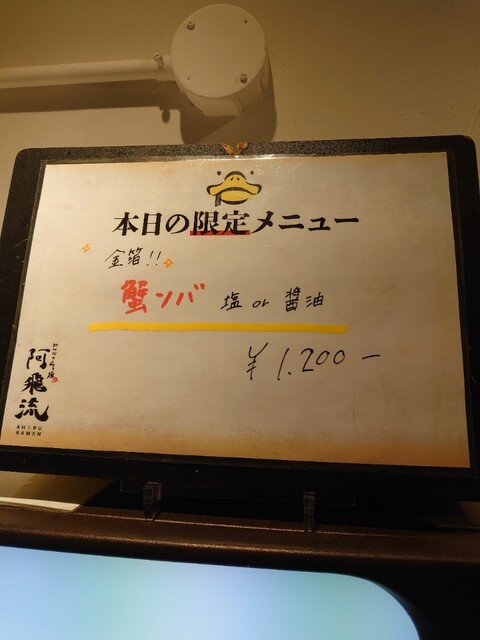 本日の限定メニュー
金箔!!
蟹ソバ 塩 or 醤油
¥1.200-
阿飛流
AHIRU
RAMEN